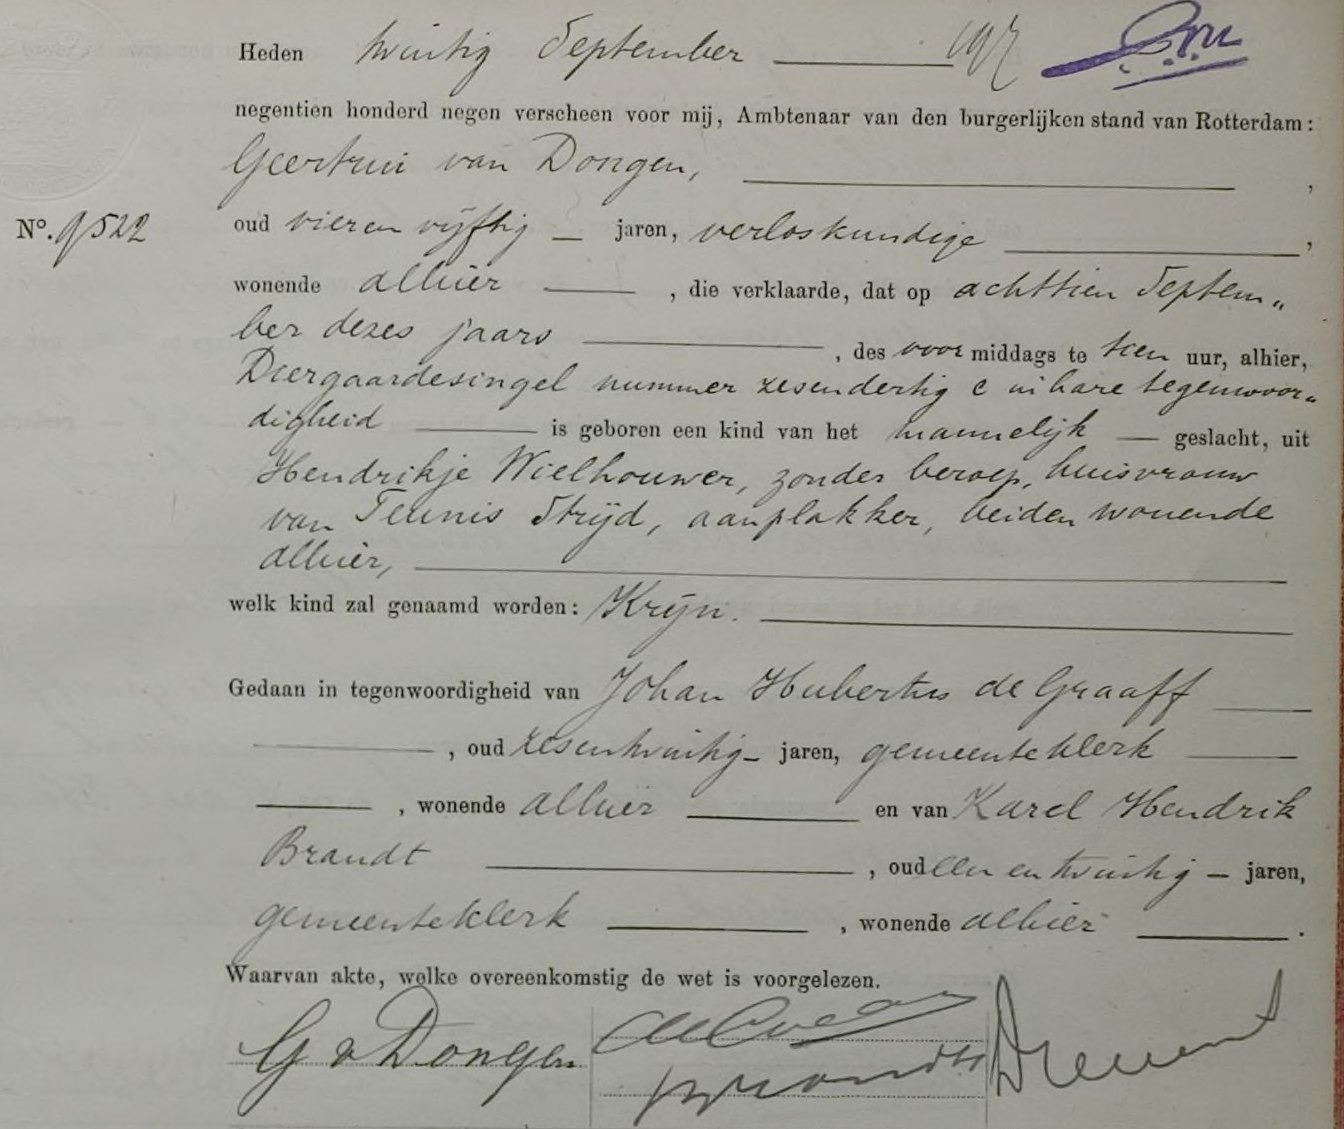 Heden twintig September
negentien honderd negen verscheen voor mij, Ambtenaar van den burgerlijken stand van Rotterdam:
Geertrui van Dongen, ,
No. 9522 oud vieren vijftig jaren, verloskundige ,
wonende alhier , die verklaarde, dat op achttien Septem„
ber dezes jaars , des voor middags te tien uur, alhier,
Diergaardesingel nummer zesendertig c in hare tegenwoor„
digheid is geboren een kind van het mannelijk geslacht, uit
Hendrikje Wielhouwer, zonder beroep, huisvrouw
van Teunis Strijd, aanplakker, beiden wonende
alhier,
welk kind zal genaamd worden: Krijn.
Gedaan in tegenwoordigheid van Johan Hubertus de Graaff
, oud zesentwintig jaren, gemeenteklerk
, wonende alhier en van Karel Hendrik
Brandt , oud een en twintig jaren,
gemeenteklerk , wonende alhier .
Waarvan akte, welke overeenkomstig de wet is voorgelezen.
G v Dongen